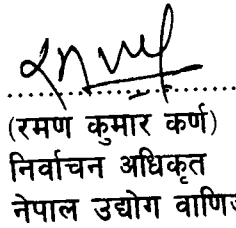 (रमण कुमार कर्ण)
निर्वाचन अधिकृत
नेपाल उद्योग